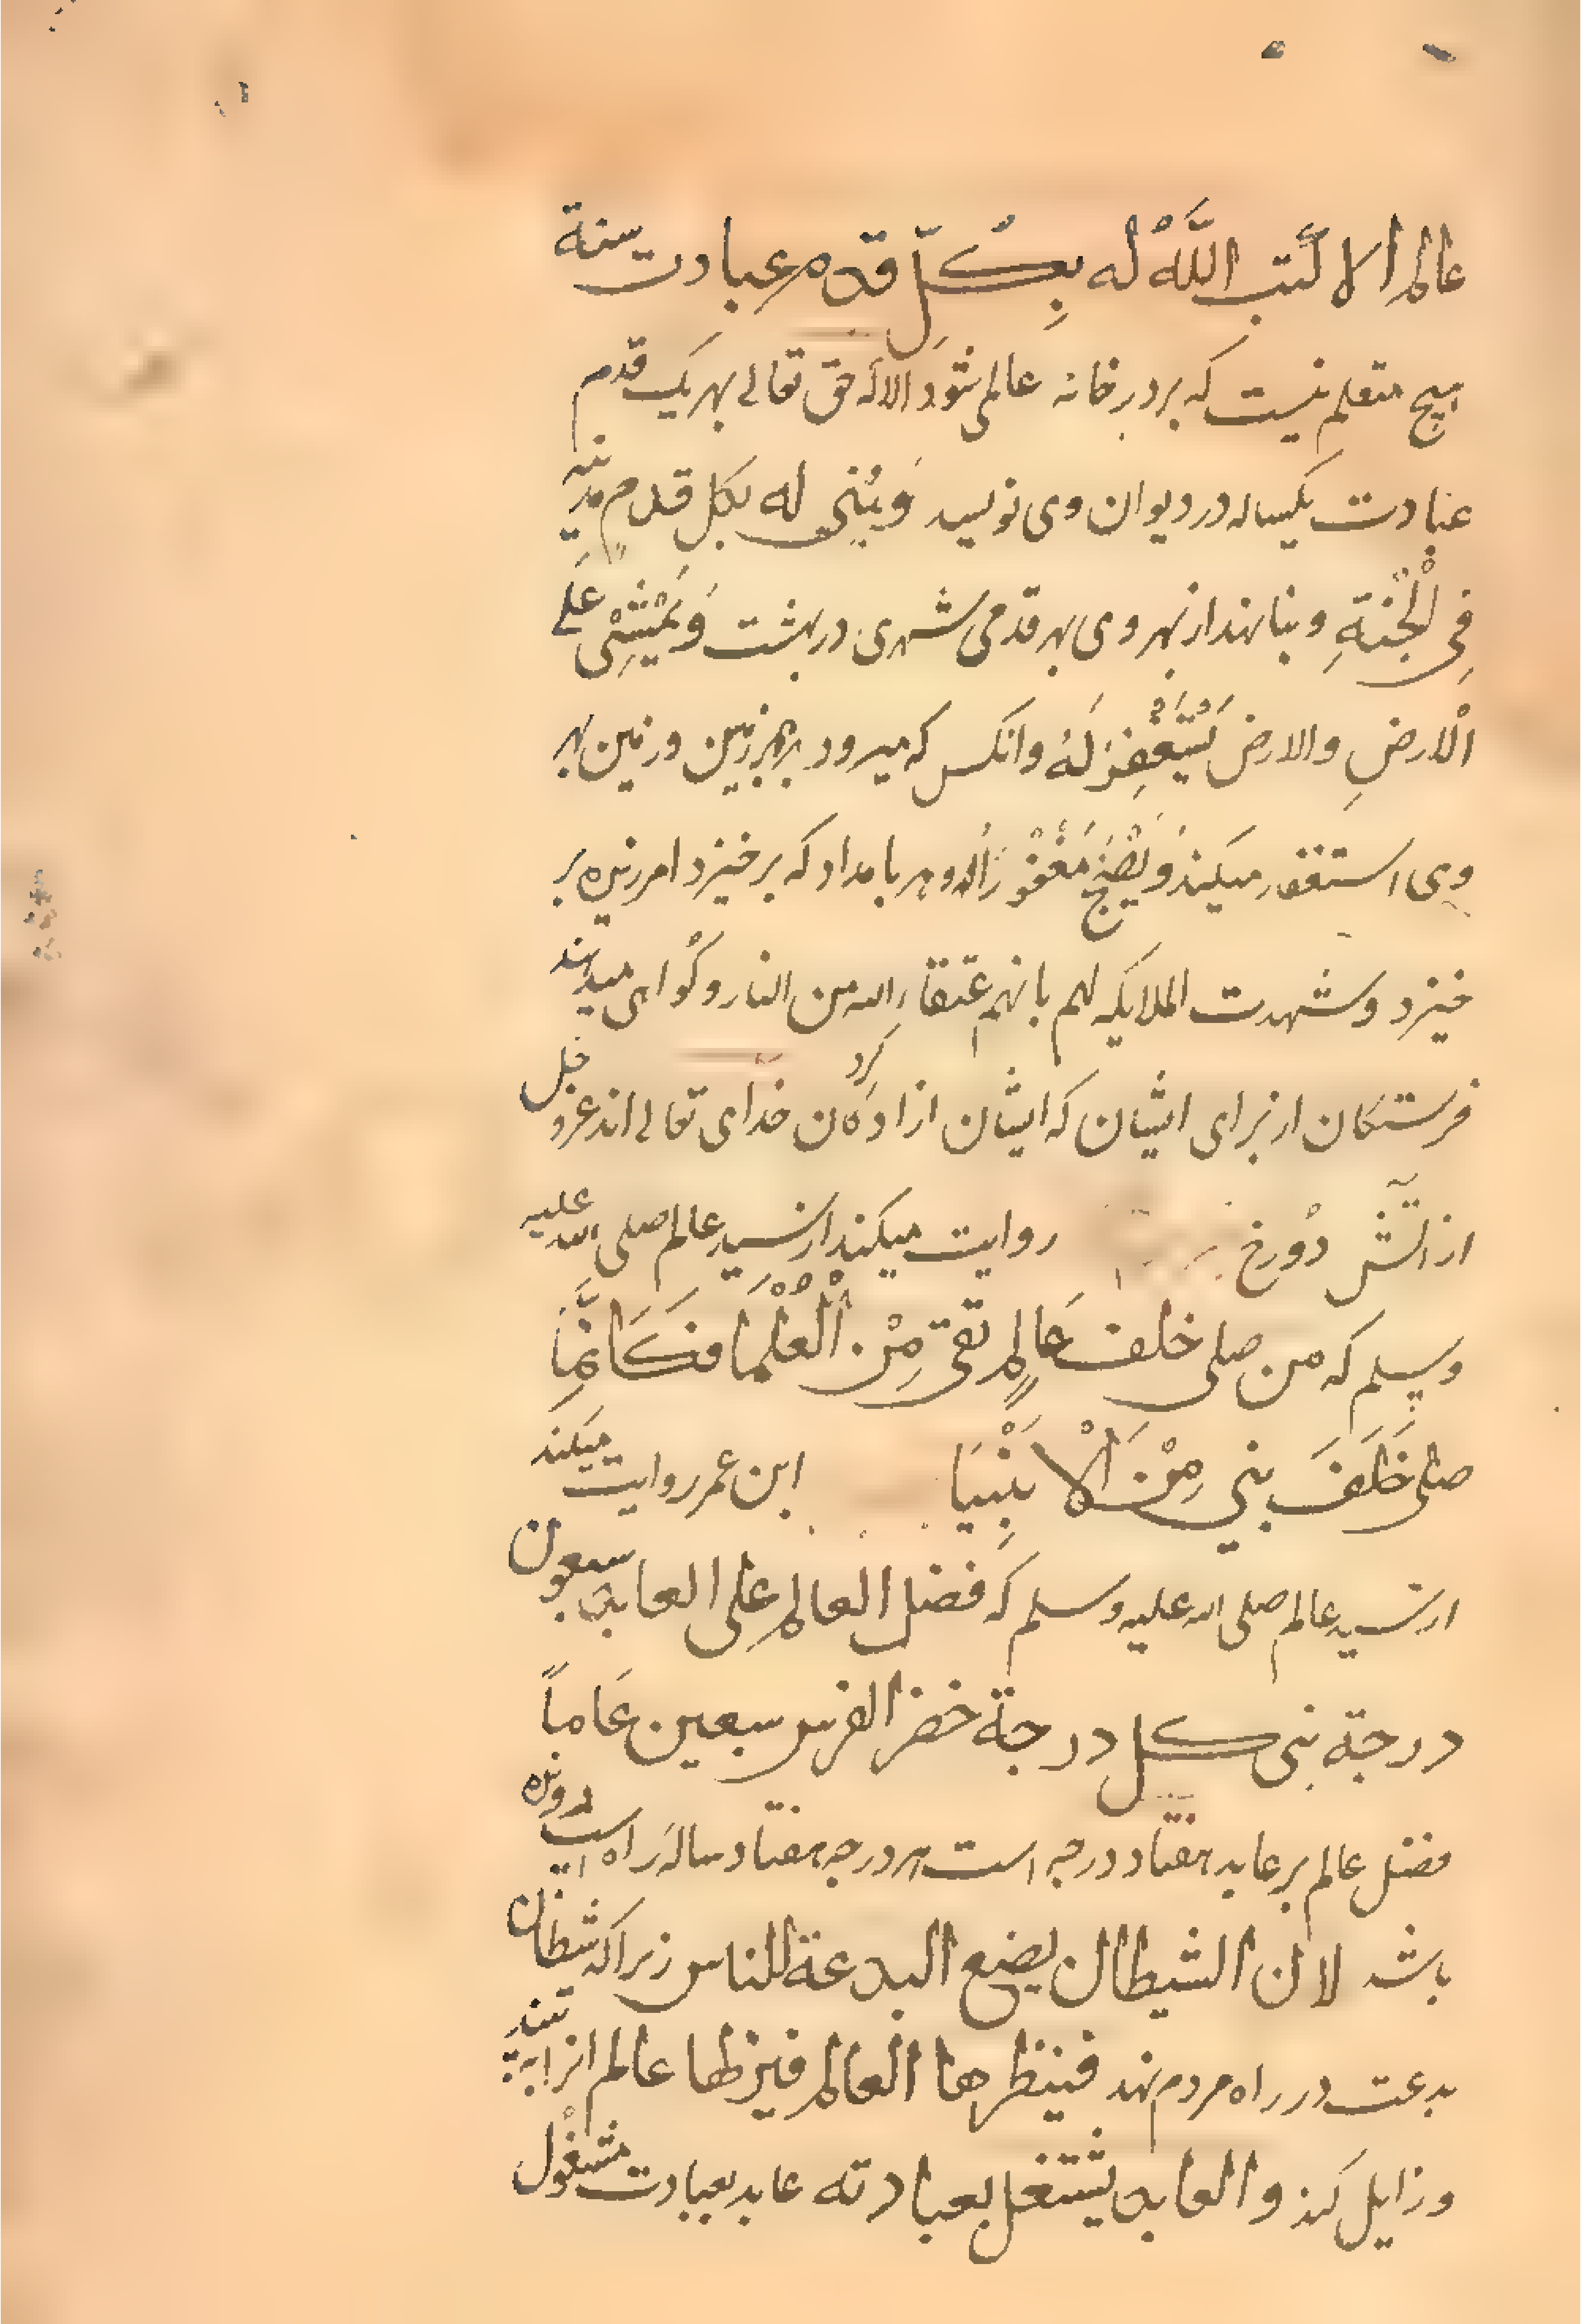 عالم الا كتب اللّه له بكلّ قدم عبادت سنة
هیچ متعلم نیست که بر در خانه عالمی شود الا که حق تعالی بهر یک قدم
عبادت یکساله در دیوان وی نویسد وَیُبنی له بکل قدم مدینه
فِی الْجَنّةِ و بنا نهند از بهر وی بهر قدمی شهری در بهشت وَیَمْشِیْ عَلی
الْارضِ والارض یَسْتَغْفِرُ لَهُ وانکس که میرود بر زمین و زمین بهر
وی استغفار میکند وَیُصْبِحُ مَغْفُوْرًا له و هر بامداد که برخیزد امرزیده بر
خیزد و شهدت الملایکه لهم بانهم عتقاء الله من النار و گواهی میدهند
فرستکان از برای ایشان که ایشان ازاد کردکان خدای تعالی اند عز و جل
از آتش دوزخ روایت میکند از سید عالم صلی الله علیه
وسلم که من صلی خلف عَالِمٍ تقی مِنْ الْعُلَمَا فَکَانَّمَا
صلی خَلَفَ نبی مِنْ اَلْانْبِیَا ابن عمر روایت میکند
از سید عالم صلی الله علیه وسلم که فضل العالم علی العابد سبعون
درجة بنی کل درجة حضر الفرس سبعین عَاماً
فضل عالم بر عابد هفتاد درجه است هر درجه هفتاد ساله راه اسب دونده
باشد لان الشیطان یضع البدعة للناس زیرا که شیطان
بدعت در راه مردم نهد فینظرها العالم فیزلها عالم انرا به بیند
و زایل کند والعابد یشتغل بعبادته عابد بعبادت مشغول